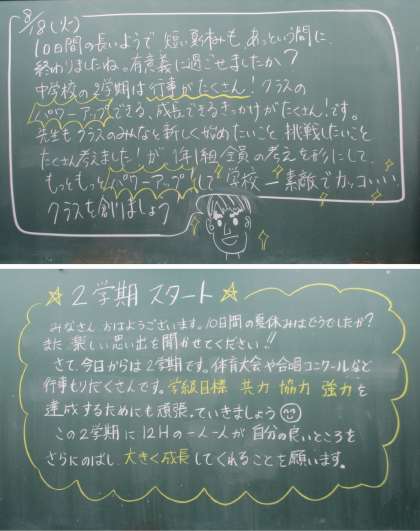 8/18(火)
10日間の長いようで短い夏休みも、あっという間に
終わりましたね。有意義に過ごせましたか？
中学校の2学期は行事がたくさん！クラスの
パワーアップできる、成長できるきっかけがたくさん！です。
先生もクラスのみんなと新しく始めたいこと 挑戦したいこと
たくさん考えました！が 1年1組全員の考えを形にして、
もっともっとパワーアップ！して 学校一素敵でカッコいい
クラスを創りましょう
☆2学期 スタート☆
みなさん おはようございます。10日間の夏休みはどうでしたか？
また、楽しい思い出を聞かせてください!!
さて、今日からは2学期です。体育大会や合唱コンクールなど
行事もりだくさんです。学級目標 共力 協力 強力を
達成するためにも頑張っていきましょう
この2学期に12Hの一人一人が自分の良いところを
さらにのばし、大きく成長してくれることを願います。